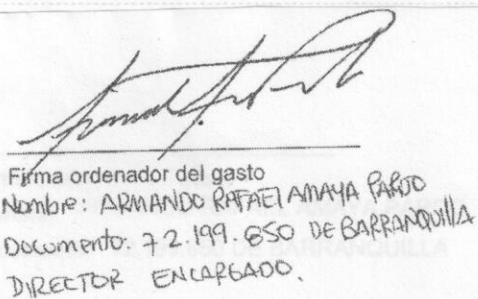 Firma ordenador del gasto
Nombre: ARMANDO RAFAEl AMAYA PARDO
Documento: 72.199.650 DE BARRANQUillA
DIRECTOR ENCARGADO.